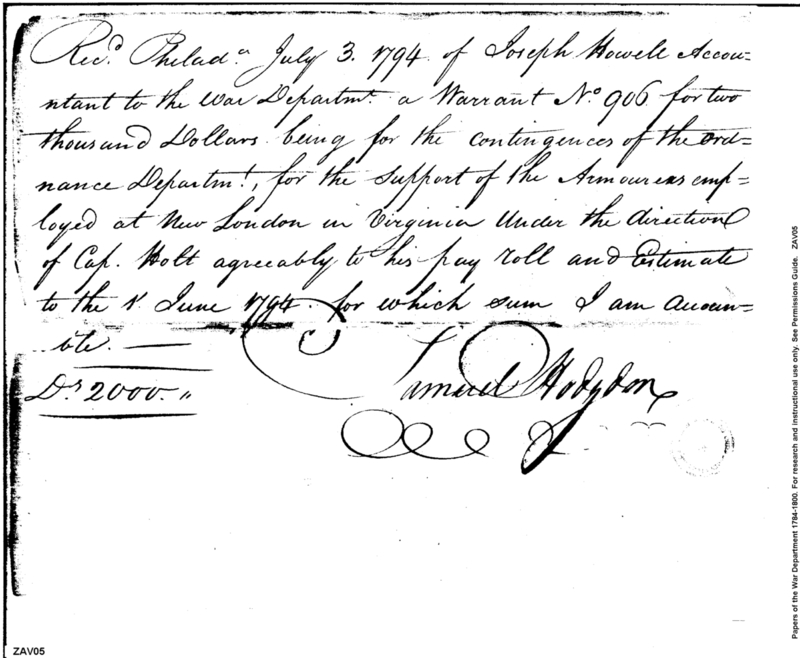 Rec.d Philad.a July 3. 1794. of Joseph Howell Accou=
ntant to the War Departmt. a Warrant No. 906 for two
thousand Dollars being for the contingences of the Ord=
nance Departmt., for the support of the Armourers emp=
loyed at New London in Virginia Under the direction
of Cap. Holt agreeably to his pay roll and Estimate
to the 1st June 1794. for which sum I am Accoun=
ble. —
Drs 2000. "
Samuel Hodgdon
Papers of the War Department 1784-1800. For research and instructional use only. See Permissions Guide. ZAV05
ZAV05